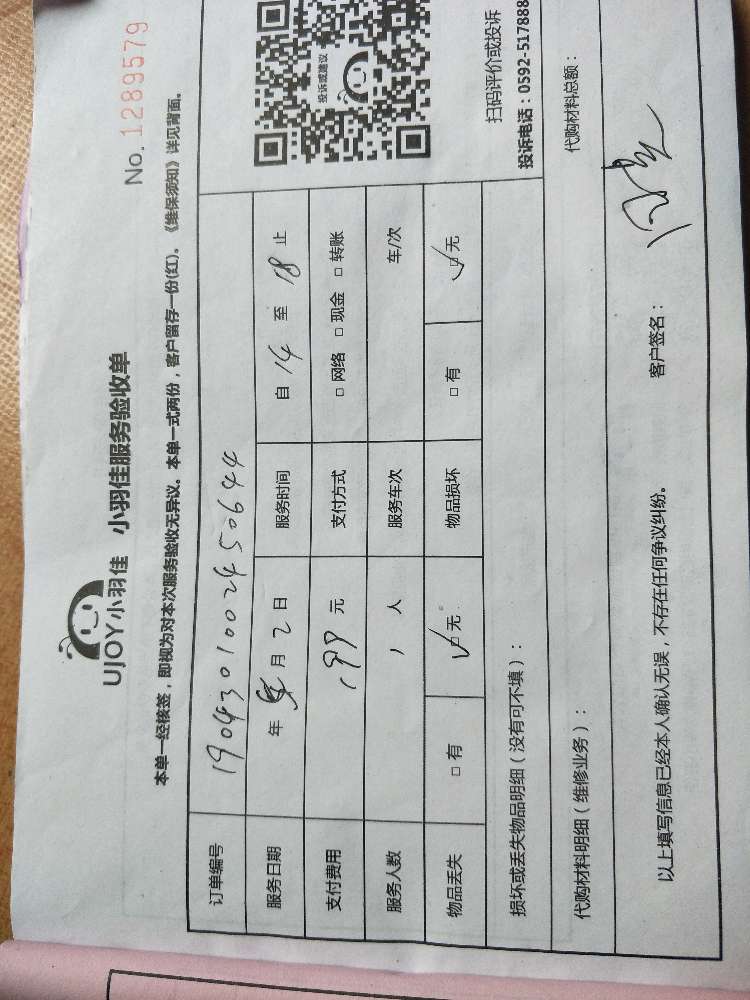 UJOY小羽佳 小羽佳服务验收单
No. 1289579
本单一经核签，即视为对本次服务验收无异议。本单一式两份，客户留存一份(红)。《维保须知》详见背面。
订单编号 190430100245 0644
服务日期 年 5 月 2 日 服务时间 自 14 至 18 止
支付费用 199 元 支付方式 □ 网络 □ 现金 □ 转账
服务人数 1 人 服务车次 车/次
物品丢失 □ 有 ☑ 无 物品损坏 □ 有 ☑ 无
投诉或建议
扫码评价或投诉
投诉电话：0592-517888
损坏或丢失物品明细（没有可不填）：
代购材料明细（维修业务）： 代购材料总额：
以上填写信息已经本人确认无误，不存在任何争议纠纷。 客户签名：